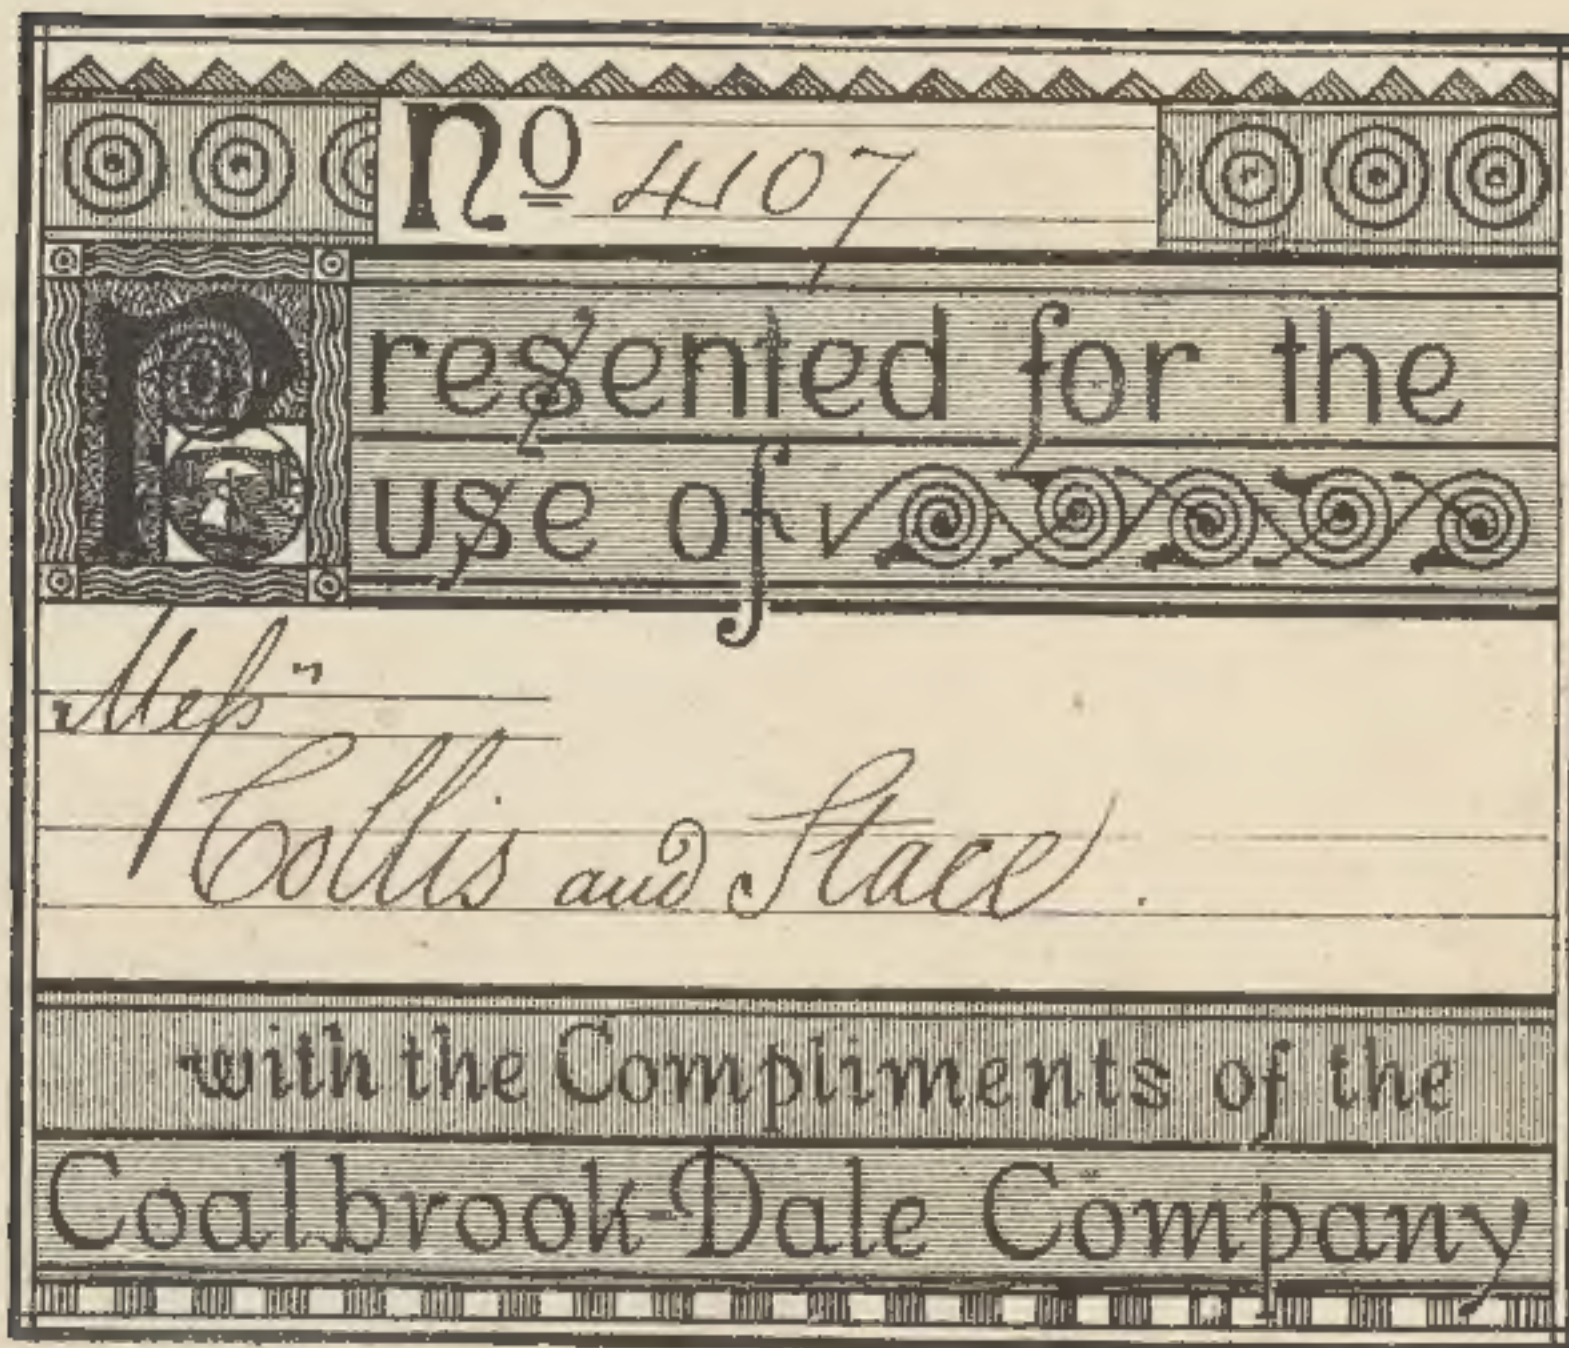 No 4107
Presented for the
use of
Mess rs
Collis and Stace.
with the Compliments of the
Coalbrook-Dale Company